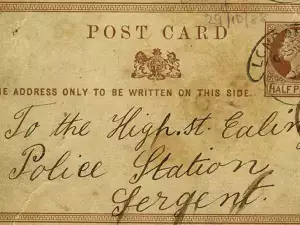 29/10/88
POST CARD
HE ADDRESS ONLY TO BE WRITTEN ON THIS SIDE.
HALF P
To the High. st. Ealin
Police Station
Sergent.